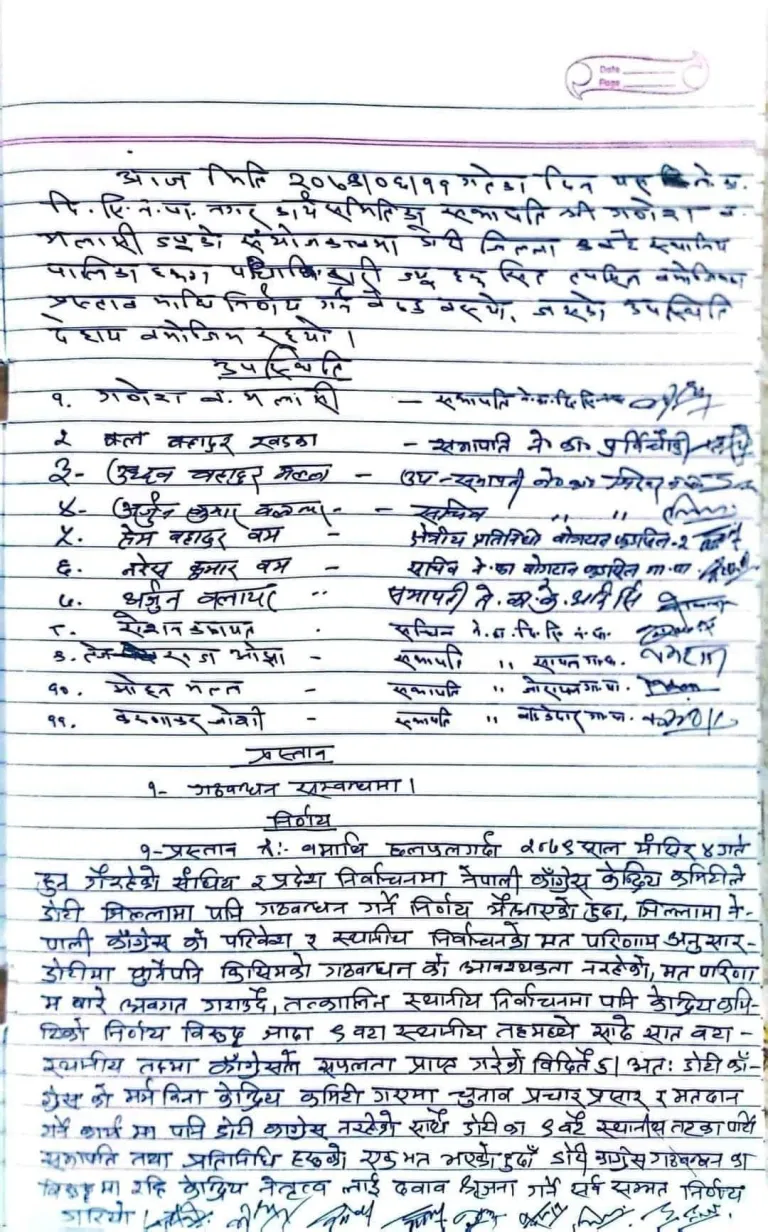 Date
Page
आज मिति २०७९/०६/११ गतेका दिन यह ने.का.
दि.सि.न.पा. नगर कार्यसमितिका सभापति श्री गणेश ब.
मलासी ज्यूको संयोजकत्वमा डोटी जिल्ला स्थानिय
पालिका
प्रस्ताव माथि निर्णय गर्न बैठक बस्यो, जसको उपस्थिति
देहाय बमोजिम रह्यो ।
उपस्थिति
१. गणेश ब. मलासी – सभापति ने.का. दि.सि.न.पा.
२ बल बहादुर खडका – सभापति ने का पूर्विचौकी
३- उध्दव बहादुर मल्ल – उप-सभापती ने.का.
४- अर्जुन कुमार – सचिव " "
५. हेम बहादुर बम – क्षेत्रीय प्रतिनिधी बोगटान फुड्सिल-२
६. नरेस कुमार बम – सचिव ने.का बोगटान फुड्सिल गा.पा.
७. अर्जुन वलायर " सभापती ने.का.के.आई सिं
८. . सचिव ने.का. शि. न.पा.
९. तेज ओझा – सभापति " सायल गा.पा.
१०. मोहन मल्ल – सभापति " जोरायल गा.पा.
११. करुणाकर जोशी – सभापति " बडिकेदार गा.पा.
प्रस्ताव
१- गठबन्धन सम्बन्धमा ।
निर्णय
१-प्रस्ताव नं:- १ माथि छलफल गर्दा २०७९ साल मंसिर ४ गते
हुन गैरहेको संघिय र प्रदेश निर्वाचनमा नेपाली काँग्रेस केन्द्रिय कमिटीले
डोटी जिल्लामा पनि गठबन्धन गर्ने निर्णय भैआएको हुदा, जिल्लामा ने-
पाली काँग्रेस को परिवेश र स्थानीय निर्वाचनको मत परिणाम अनुसार-
डोटीमा कुनैपनि किसिमको गठबन्धन को आवश्यकता नरहेको, मत परिणा
म बारे अवगत गराउदै, तत्कालिन स्थानीय निर्वाचनमा पनि केन्द्रिय कमि-
टिको निर्णय विरुद्ध जादा ९ वटा स्थानीय तहमध्ये साढे सात वटा -
स्थानीय तहमा काँग्रेसले सफलता प्राप्त गरेको विदितै छ। अतः डोटी काँ-
ग्रेस को मर्म बिना केन्द्रिय कमिटी गएमा चुनाव प्रचार प्रसार र मतदान
गर्ने कार्य मा पनि डोटी काग्रेस नरहेको साथै डोटी का ९ वटै स्थानीय तहका पार्टी
सभापति तथा प्रतिनिधि हरुको एक मत भएको हुदाँ डोटी काग्रेस गठबन्धन का
बिरुद्ध मा रहि केन्द्रिय नेतृत्व लाई दवाव श्रृजना गर्ने सर्व सम्मत निर्णय
गरियो ।